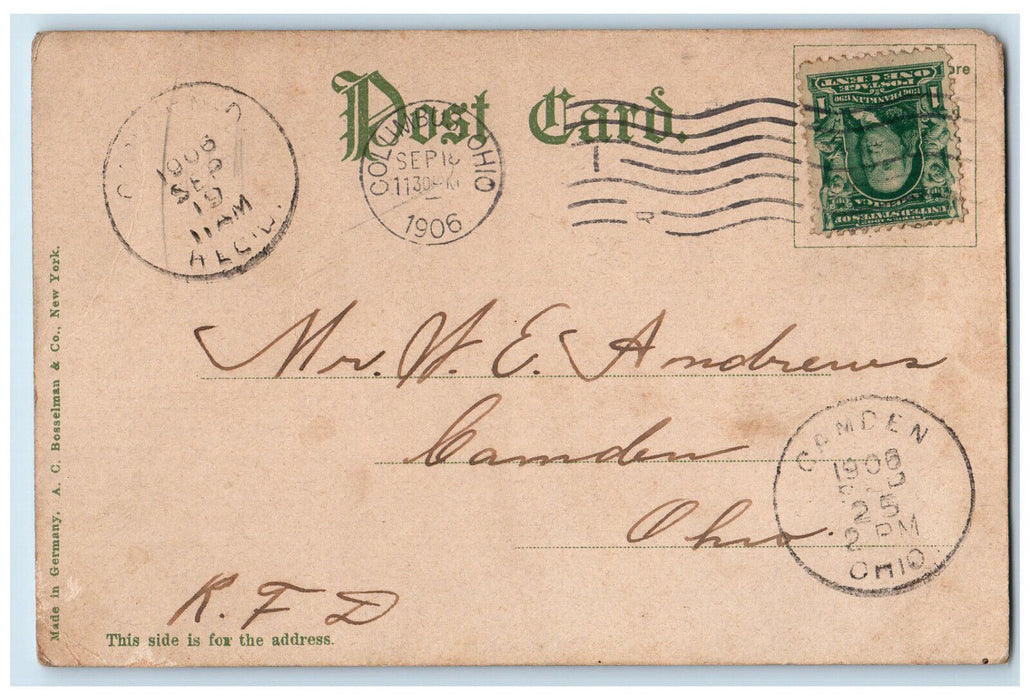 Post Card.
COLUMBUS, OHIO
SEP 18
1130 PM
1906
1906
SEP
19
11 AM
REC'D.
ONE CENT
POSTAGE
1706 FRANKLIN 1790
UNITED STATES OF
AMERICA
Mr. W. E. Andrews
Camden
Ohio.
CAMDEN
1906
25
2 PM
OHIO
R. F. D
This side is for the address.
Made in Germany, A. C. Bosselman & Co., New York.